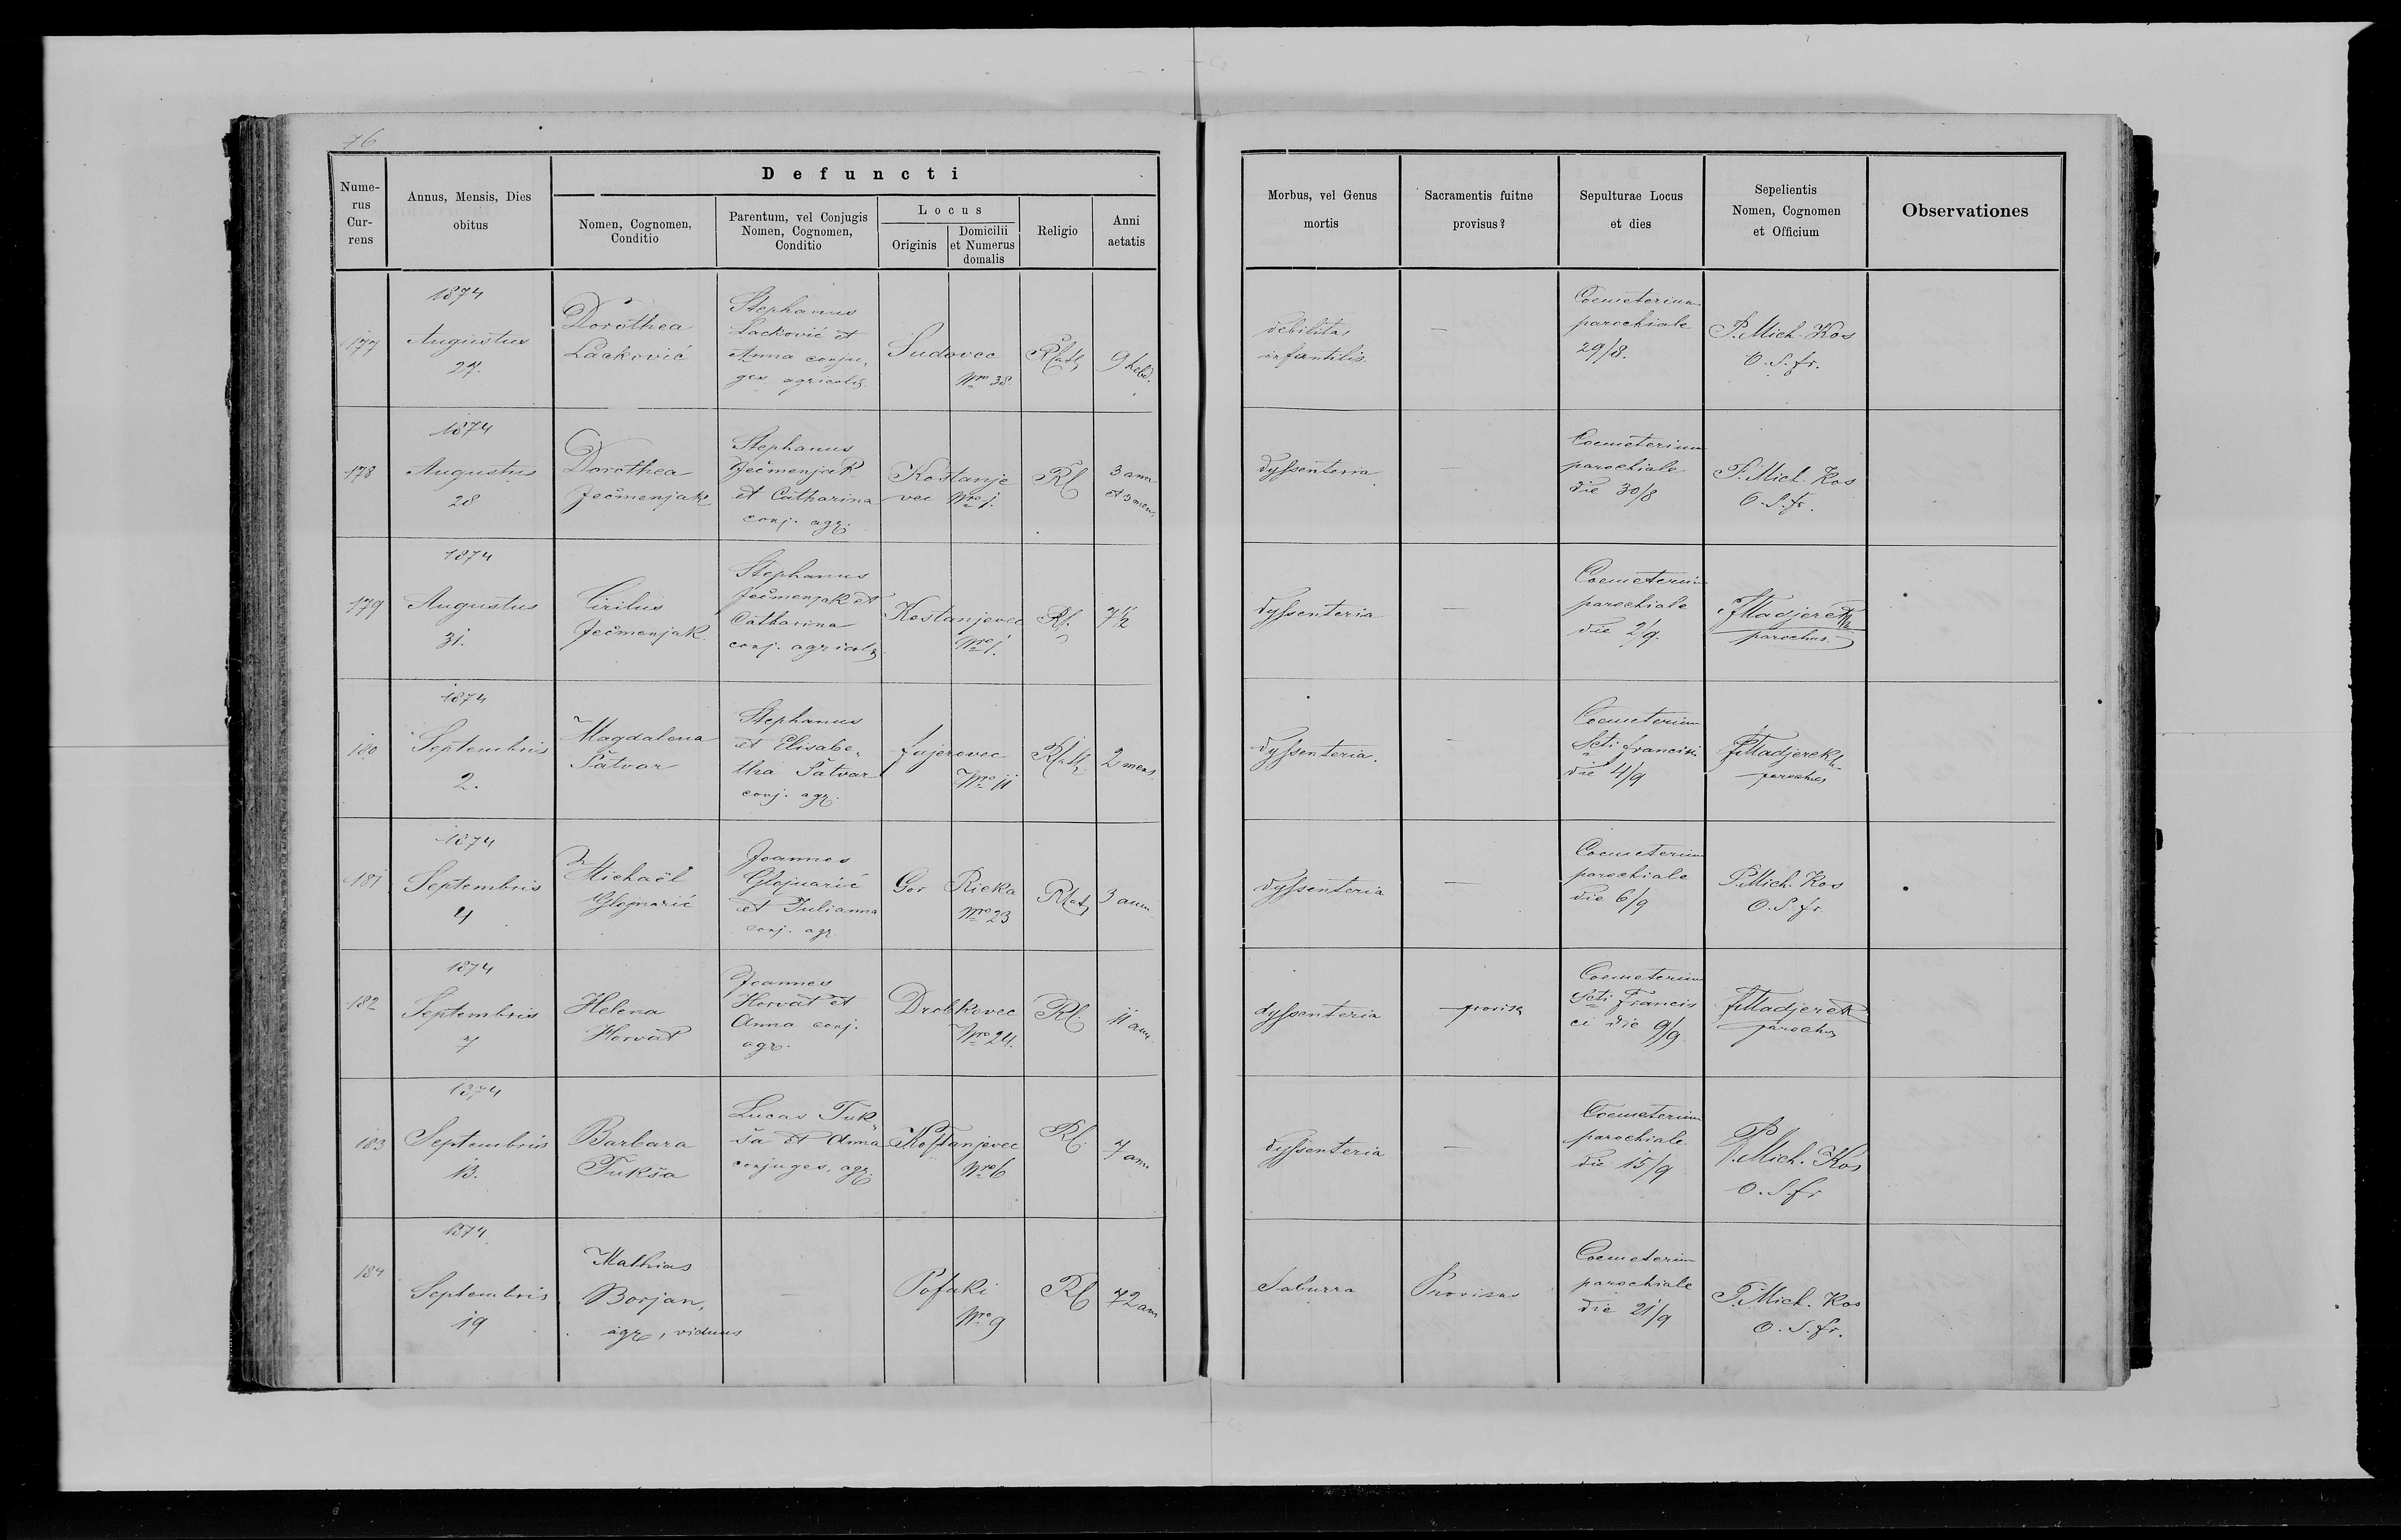 76
Defuncti
Nume-
rus
Cur-
rens
Annus, Mensis, Dies
obitus
Nomen, Cognomen,
Conditio
Parentum, vel Conjugis
Nomen, Cognomen,
Conditio
Locus
Originis
Domicilii
et Numerus
domalis
Religio
Anni
aetatis
Morbus, vel Genus
mortis
Sacramentis fuitne
provisus?
Sepulturae Locus
et dies
Sepelientis
Nomen, Cognomen
et Officium
Observationes
177
1874
Augustus
27.
Dorothea
Lacković
Stephanus
Lacković et
Anna conju-
ges agricolæ
Sudovec
Nro 38.
9 hebd.
debilitas
infantilis.
—
Coemeterium
parochiale
29/8.
P. Mich. Kos
O. S. fr.
178
1874
Augustus
28
Dorothea
Ječmenjak
Stephanus
Ječmenjak
et Catharina
conj. agr.
Kostanje
vec Nro 1.
3 ann
et 3 men.
dyssenteria
—
Coemeterium
parochiale
die 30/8
P. Mich. Kos
O. S. fr.
179
1874
Augustus
31.
Cirilus
Ječmenjak
Stephanus
Ječmenjak et
Catharina
conj. agricolæ
Kostanjevec
Nro 1.
7 1/2
dyssenteria
—
Coemeterium
parochiale
die 2/9.
Madjerek
parochus.
180
1874
Septembris
2.
Magdalena
Šatvar
Stephanus
et Elisabe-
tha Šatvar
conj. agr.
fajerovec
Nro 11
2 mens.
dyssenteria.
—
Coemeterium
Scti francisi
die 4/9
Madjerek
parochus
181
1874
Septembris
4
Michaël
Glojnarić
Joannes
Glojnarić
et Julianna
conj. agr.
Gor Rieka
Nro 23
3 ann.
dyssenteria
—
Coemeterium
parochiale
die 6/9
P. Mich. Kos
O. S. fr.
182
1874
Septembris
7
Helena
Horvat
Joannes
Horvat et
Anna conj.
agr.
Drobkovec
Nro 24.
11 ann.
dyssenteria
provisa
Coemeterium
Scti Francis
ci die 9/9
Madjerek
parochus
183
1874
Septembris
13.
Barbara
Tukša
Lucas Tuk-
ša et Anna
conjuges, agr.
Kostanjevec
Nro 6
7 ann
dyssenteria
—
Coemeterium
parochiale
die 15/9
P. Mich. Kos
O. S. fr
184
1874
Septembris
19
Mathias
Borjan,
agr, viduus
—
Pofuki
Nro 9
72 ann
Saburra
Provisus
Coemeterium
parochiale
die 21/9
P. Mich. Kos
O. S. fr.